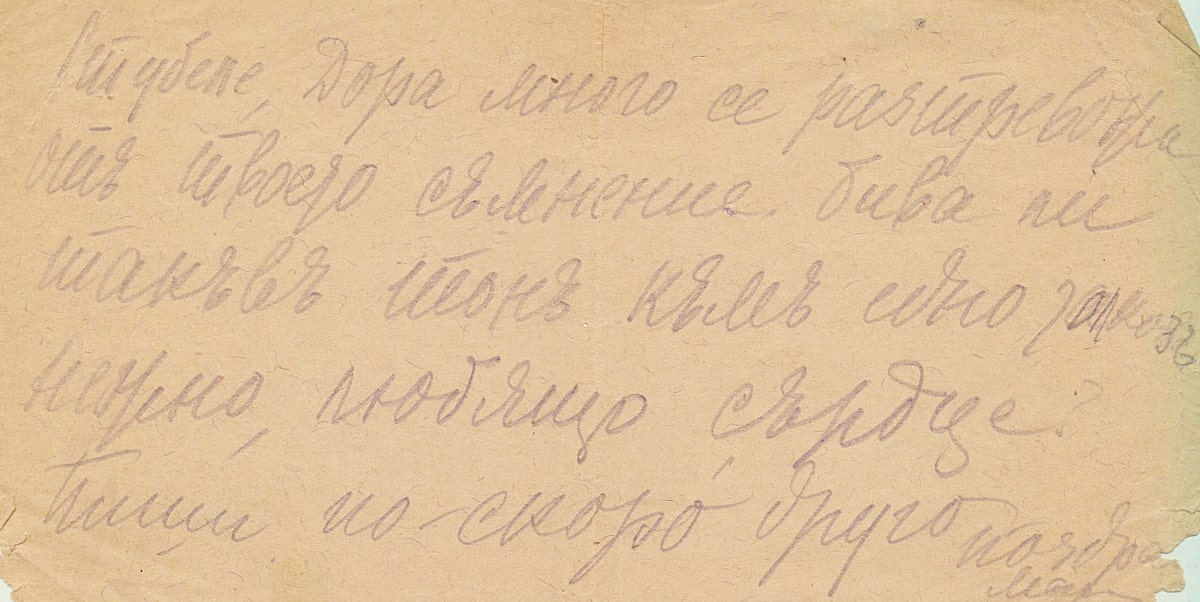 Дора много се разтревожи
отъ твоето съмнение. Бива ли
такъвъ тонъ къмъ едно
нежно, любящо сърдце?
Пиши по-скоро друго